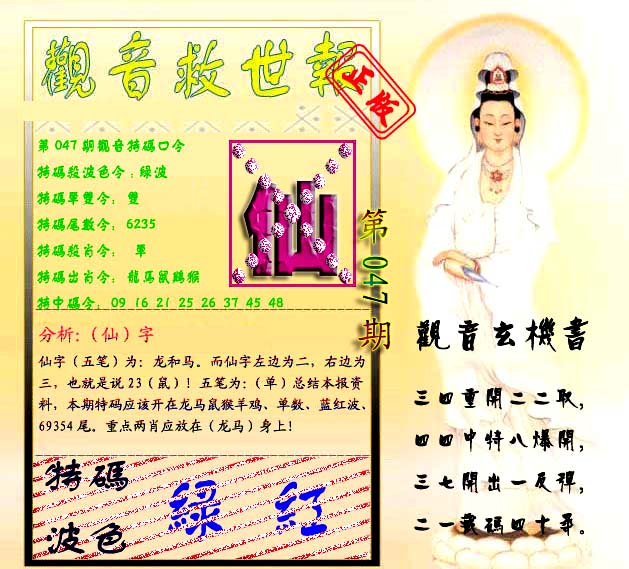 觀音救世報
正版
第 047 期觀音特碼口令
特碼殺波色令：綠波
特碼單雙令： 雙
特碼尾數令： 6235
特碼殺肖令： 單
特碼出肖令： 龍馬鼠鷄猴
特中碼令： 09 16 21 25 26 37 45 48
仙
第 047 期
分析:（仙）字
仙字（五笔）为：龙和马。而仙字左边为二，右边为
三，也就是说 23（鼠）！五笔为：（单）总结本报资
料，本期特码应该开在龙马鼠猴羊鸡、单数、蓝红波、
69354 尾。重点两肖应放在（龙马）身上！
特碼
波色
綠 紅
觀音玄機書
三四重開二二取，
四四中特八爆開，
三七開出一反彈，
二一載碼四十尋。